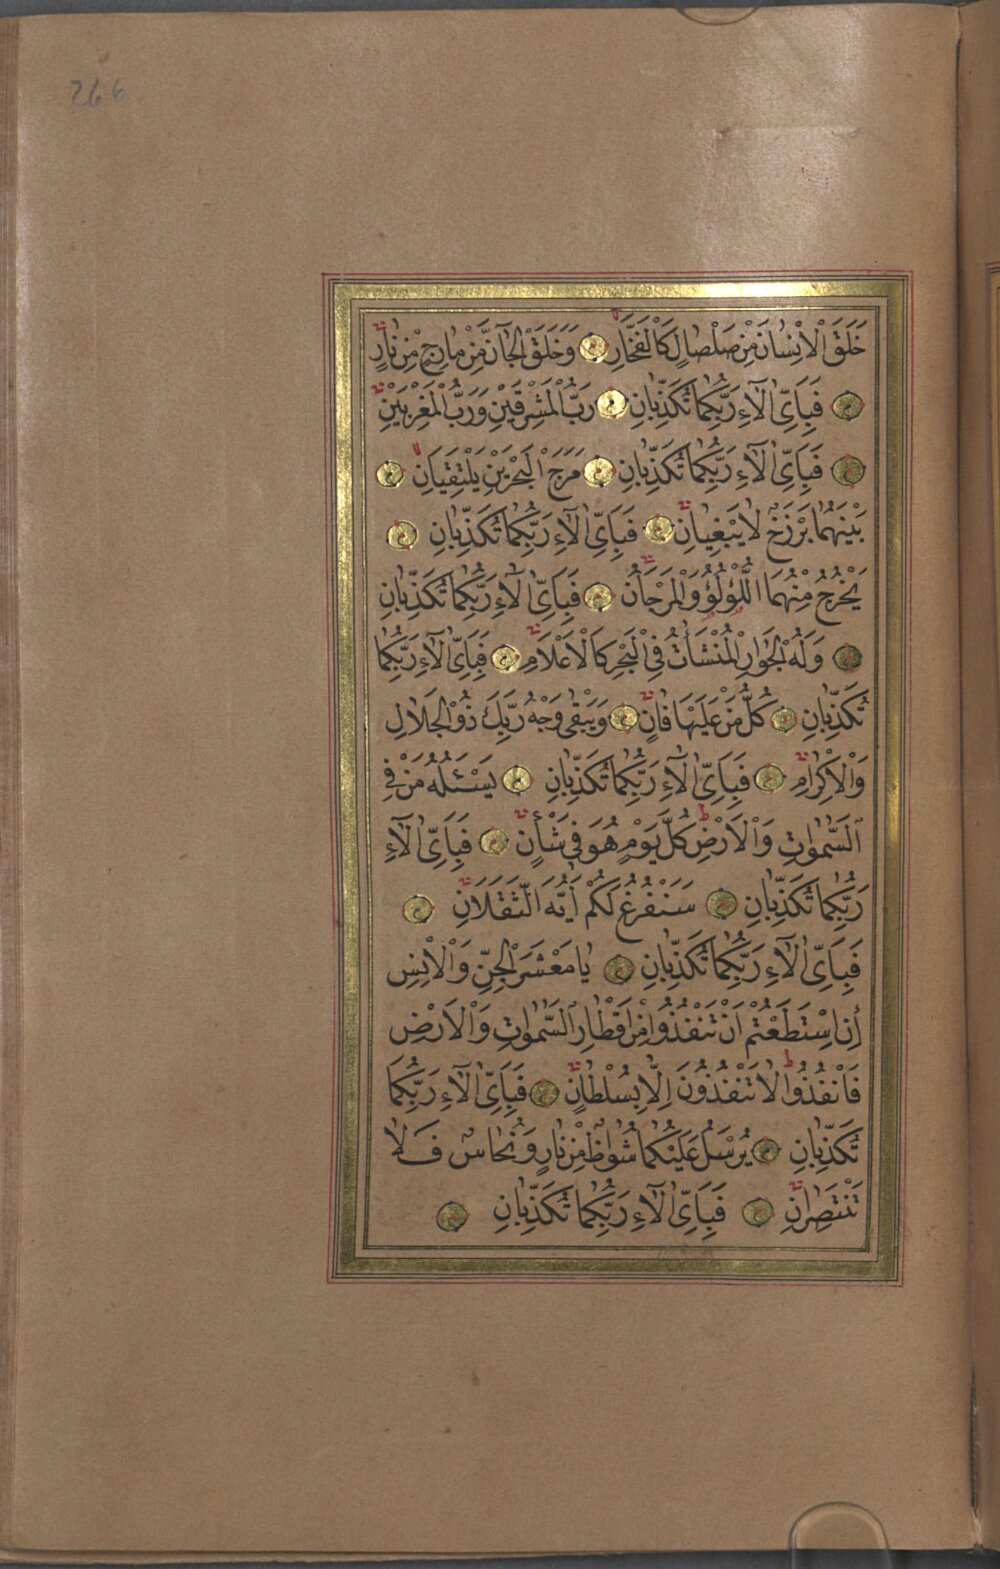 266
خَلَقَ الْاِنْسَانَ مِنْ صَلْصَالٍ كَالْفَخَّارِ وَخَلَقَ الْجَآنَّ مِنْ مَارِجٍ مِنْ نَارٍ
فَبِاَىِّ اٰلَآءِ رَبِّكُمَا تُكَذِّبَانِ رَبُّ الْمَشْرِقَيْنِ وَرَبُّ الْمَغْرِبَيْنِ
فَبِاَىِّ اٰلَآءِ رَبِّكُمَا تُكَذِّبَانِ مَرَجَ الْبَحْرَيْنِ يَلْتَقِيَانِ
بَيْنَهُمَا بَرْزَخٌ لَا يَبْغِيَانِ فَبِاَىِّ اٰلَآءِ رَبِّكُمَا تُكَذِّبَانِ
يَخْرُجُ مِنْهُمَا اللُّؤْلُؤُ وَالْمَرْجَانُ فَبِاَىِّ اٰلَآءِ رَبِّكُمَا تُكَذِّبَانِ
وَلَهُ الْجَوَارِ الْمُنْشَاٰتُ فِى الْبَحْرِ كَالْاَعْلَامِ فَبِاَىِّ اٰلَآءِ رَبِّكُمَا
تُكَذِّبَانِ كُلُّ مَنْ عَلَيْهَا فَانٍ وَيَبْقٰى وَجْهُ رَبِّكَ ذُو الْجَلَالِ
وَالْاِكْرَامِ فَبِاَىِّ اٰلَآءِ رَبِّكُمَا تُكَذِّبَانِ يَسْـَٔلُهُ مَنْ فِى
السَّمٰوَاتِ وَالْاَرْضِ كُلَّ يَوْمٍ هُوَ فِى شَأْنٍ فَبِاَىِّ اٰلَآءِ
رَبِّكُمَا تُكَذِّبَانِ سَنَفْرُغُ لَكُمْ اَيُّهَ الثَّقَلَانِ
فَبِاَىِّ اٰلَآءِ رَبِّكُمَا تُكَذِّبَانِ يَا مَعْشَرَ الْجِنِّ وَالْاِنْسِ
اِنِ اسْتَطَعْتُمْ اَنْ تَنْفُذُوا مِنْ اَقْطَارِ السَّمٰوَاتِ وَالْاَرْضِ
فَانْفُذُوا لَا تَنْفُذُونَ اِلَّا بِسُلْطَانٍ فَبِاَىِّ اٰلَآءِ رَبِّكُمَا
تُكَذِّبَانِ يُرْسَلُ عَلَيْكُمَا شُوَاظٌ مِنْ نَارٍ وَنُحَاسٌ فَلَا
تَنْتَصِرَانِ فَبِاَىِّ اٰلَآءِ رَبِّكُمَا تُكَذِّبَانِ